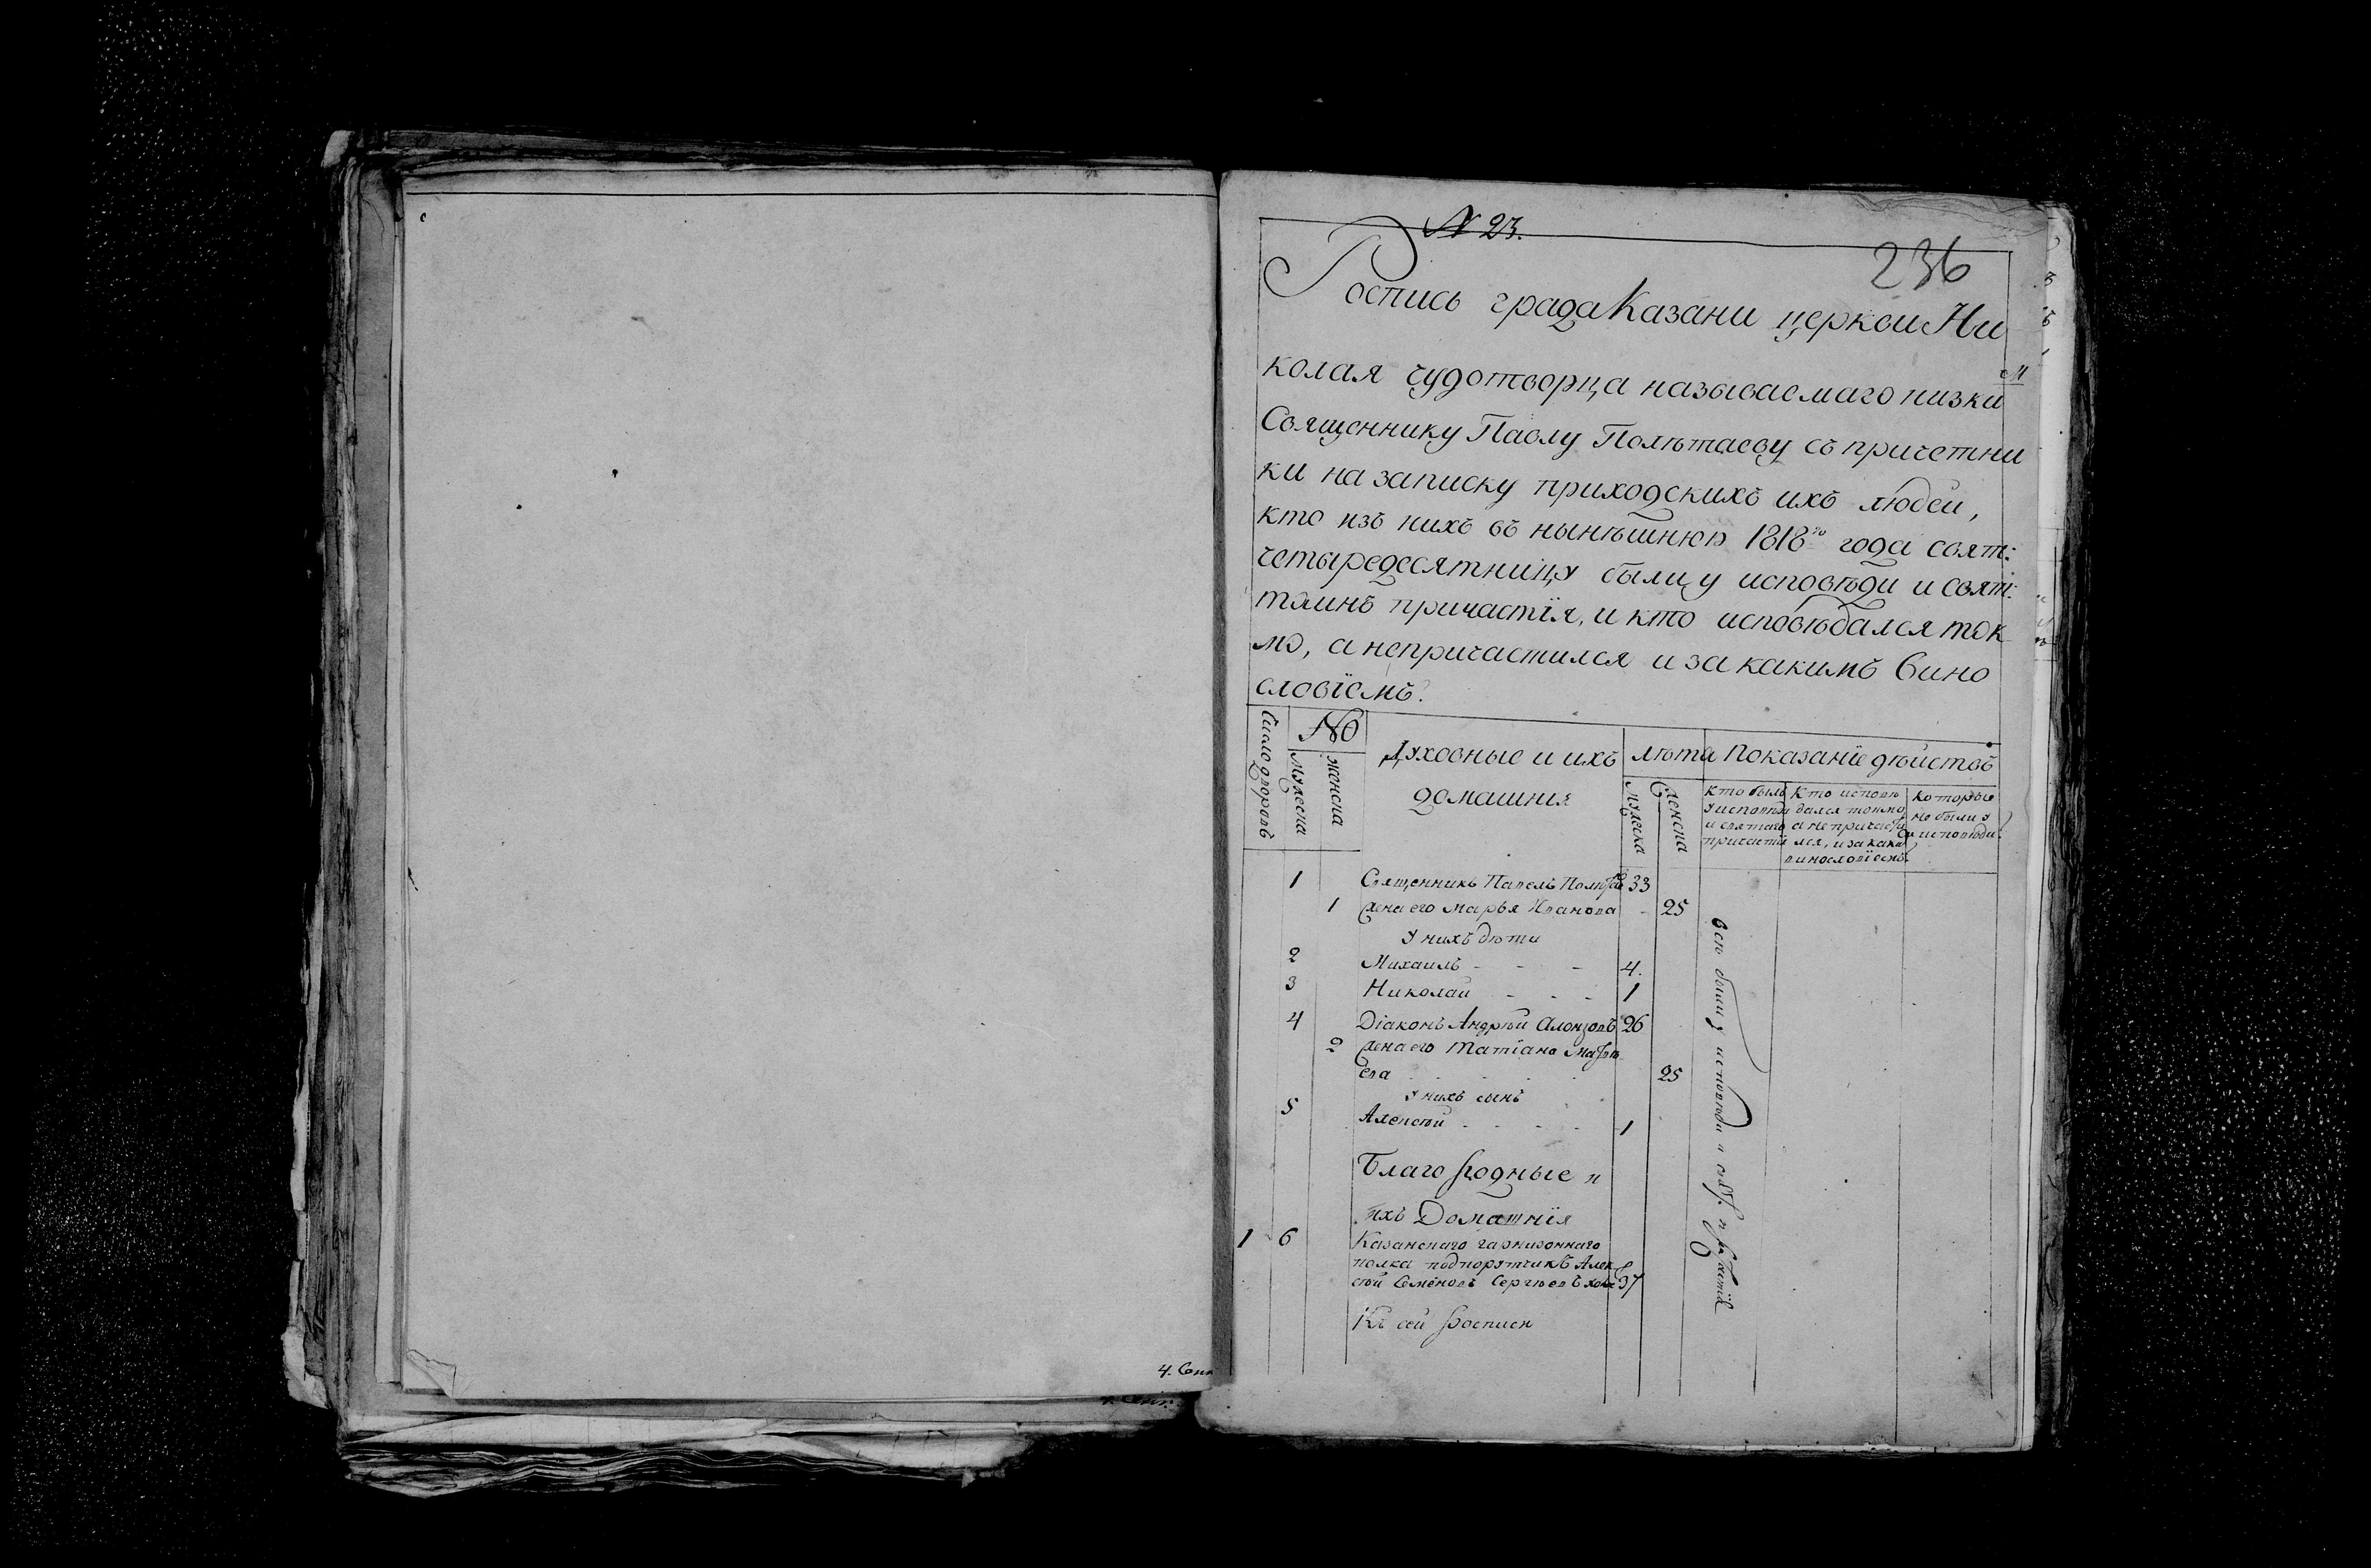 N 23.
236
Роспись града Казани церкви Ни
колая чудотворца называемаго низки
м
Священнику Павлу Полѣтаеву съ причетни
ки на записку приходскихъ ихъ людей,
кто изъ нихъ въ нынѣшнюю 1818го года свят:
четыредесятницу былиу исповѣди и свят:
таинъ причастїя, и кто исповѣдался ток
мо, а непричастился и за какимъ вино
словїемъ.
Число дворовъ
№
мужеска
женска
Духовные и ихъ
домашнія
лѣта
мужеска
женска
Показанїе дѣйствъ
кто былъ
у исповѣди
и святаго
причасті
Кто исповѣ
дался токмо
а не причасти
лся, и за каки
винословїемъ
которые
не были у
исповѣди
1 Священникъ Павелъ Полѣтае 33
1 жена его Марья Иванова - 25
У нихъ дѣти
2 Михаилъ - - - 4.
3 Николай - - - 1
4 Dїаконъ Андрѣй 26
2 жена его Татїана Матвѣ
ева 25
У нихъ сынъ
5 Алексѣй - - - - 1
Благородные и
ихъ Домашнїя
1 6 Казанскаго гарнизоннаго
полка подпорутчикъ Алек
сѣй Семеновъ Сергѣевъ холо 37
Къ сей росписи
всѣ были у исповѣди и свят. причастїя
4. Сен